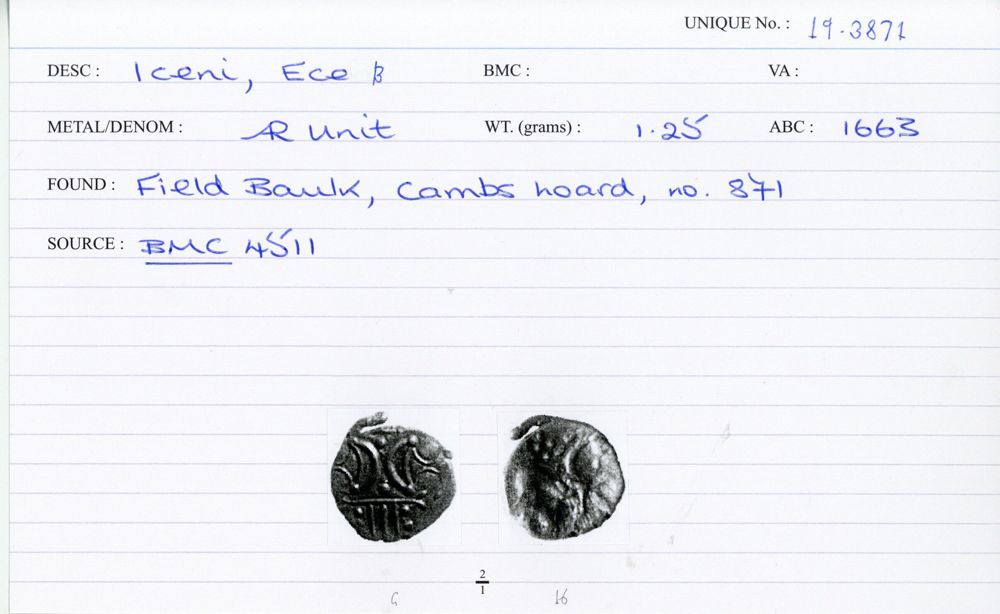 UNIQUE No. : 19.3871
DESC : Iceni, Ece B BMC : VA :
METAL/DENOM : AR Unit WT. (grams) : 1.25 ABC : 1663
FOUND : Field Baulk, Cambs hoard, no. 871
SOURCE : BMC 4511
2
1